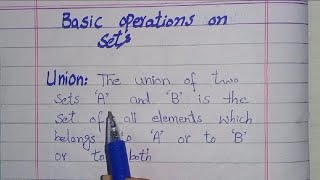 Basic operations on
Sets
Union: The union of two
sets 'A' and 'B' is the
set of all elements which
belongs to 'A' or to 'B'
or to both